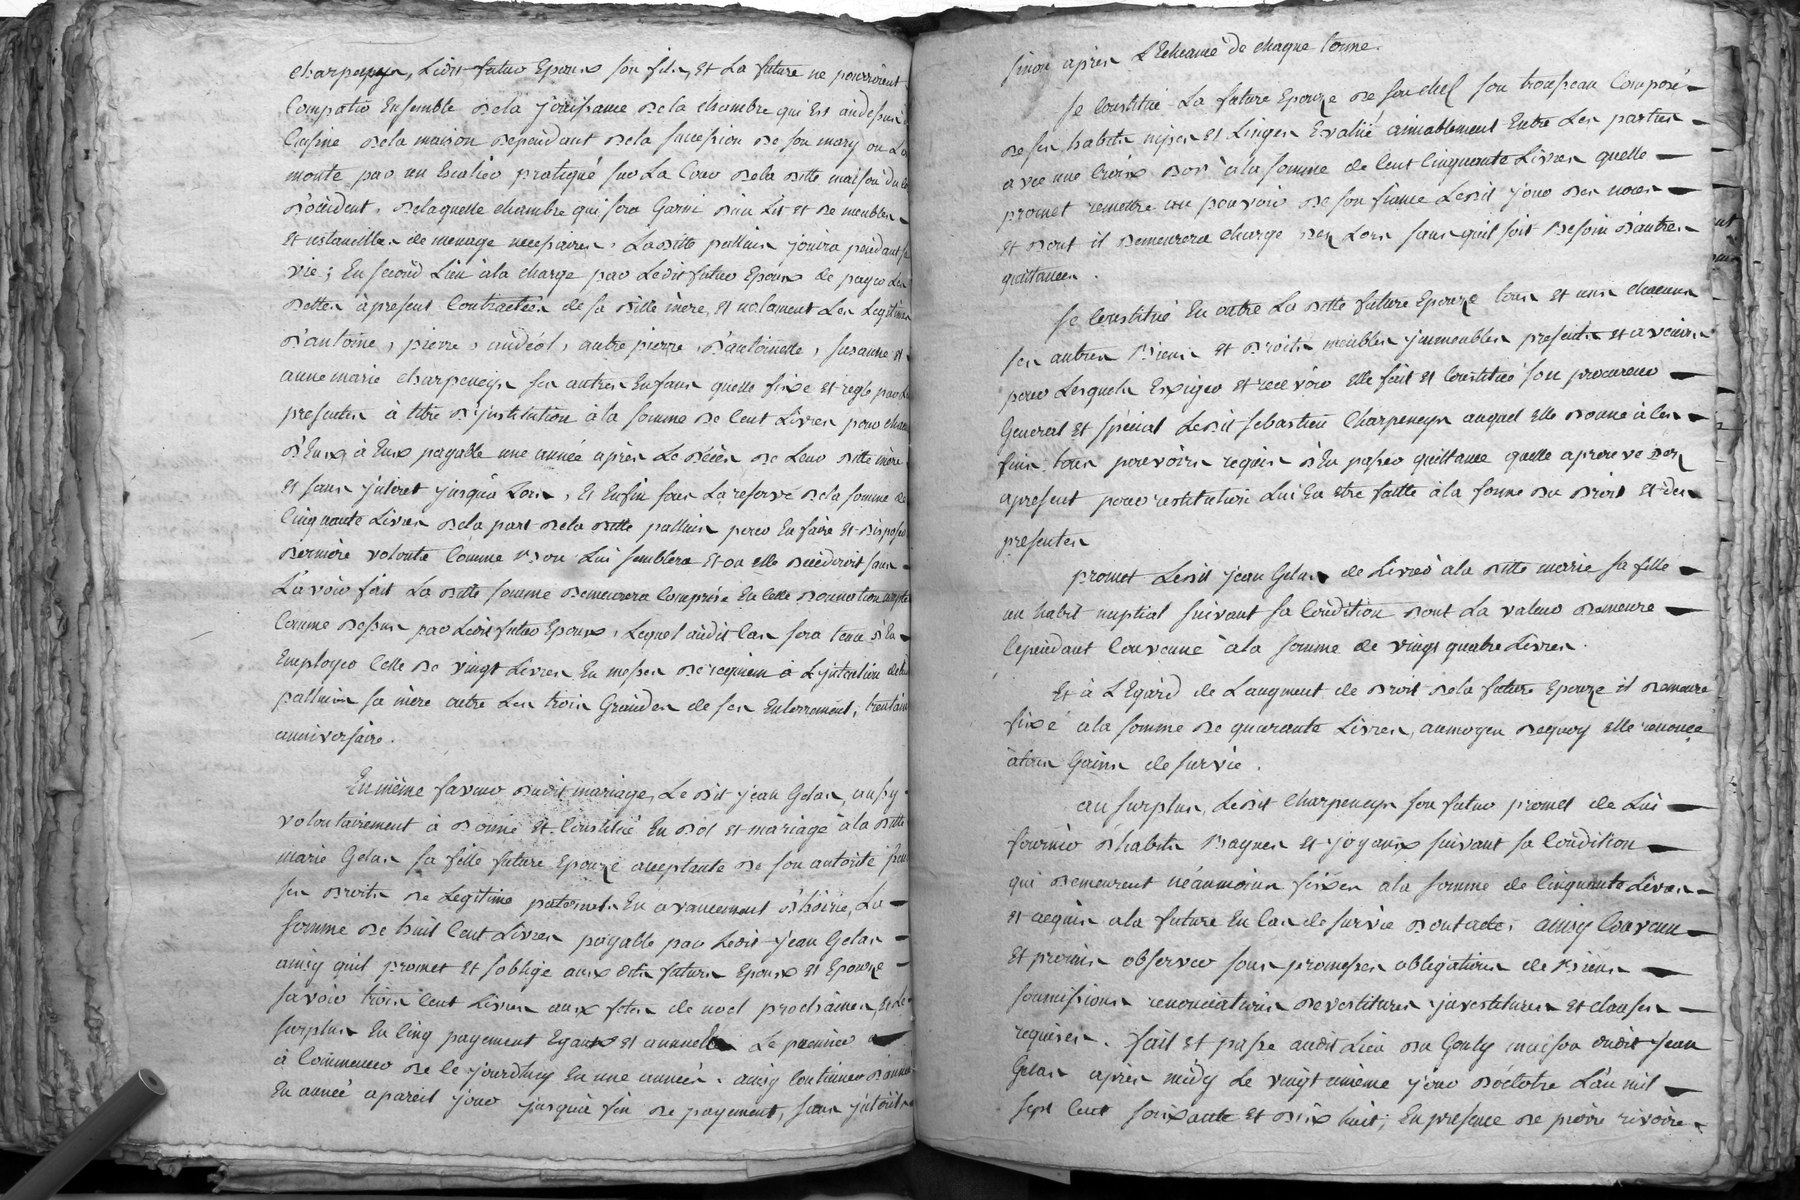 charpeneyn, Ledit futur Epoux son fils, Et La future ne pourroient
Compatir Ensemble dela jouissance dela chambre qui Est audessus
Cuisine dela maison dependant dela succession de son mary ou Lon
monte par un Escalier pratiqué sur La Cour dela ditte maison du
d'occident, delaquelle chambre qui sera Garni d'un Lit et de meubles
et ustancilles de menage necessaires, Laditte palluis jouira pendant sa
vie; En second Lieu àla charge par Ledit futur Epoux de payer Les
dettes à present Contractées de sa ditte mère, Et nolament Les Legitimes
d'antoine, pierre, andéol, autre pierre, d'antoinette, Susanne et
anne marie charpeneyn ses autres Enfans quelle fixe et regle par Les
presentes à titre d'institution àla somme de Cent Livres pour chacun
d'Eux à Eux payable une année après Le décès de Leur ditte mère
et sans jnteret jusqu'a Lors, Et Enfin sous La reserve dela somme de
Cinquante Livres dela part dela ditte palluis pour En faire Et disposer
dernière volonté Comme Bon Lui semblera Et ou elle décedroit sans
L'avoir fait La ditte somme demeurera Comprise En Celle donnation
Comme dessus par Ledit futur Epoux, Lequel audit Cas sera tenu d'En
Employer Celle de vingt Livres En messes de requiem à L'jntention de lad
palluis sa mère outre Les trois Grandes de ses Enterrement, trentain
anniversaire.
En même faveur dudit mariage, Ledit jean Gelas, aussy
volontairement à Donné Et Constitué En Dot et mariage àla ditte
marie Gelas sa fille future Epouze acceptante de son autorité pour
ses Droits de Legitime paternels En avancement d'hoirie, La
somme de huit Cent Livres payable par Ledit jean Gelas
ainsy quil promet et soblige aux dits futurs Epoux et Epouze
savoir trois Cent Livres aux fetes de noel prochaines, Et Le
surplus En Cinq payement Egaux et annuels Le premier
à Commencer de Ce jourdhuy En une année, ainsy Continuer d'année
En année apareil jour jusqu'à fin de payement, sans jnteret
sinon après L'Echeance de chaque terme.
se Constitue La future Epouze de son chef son trousseau Composé
de ses habits nipes et Linges Evalué aimablement Entre Les parties
avec une Croix d'or àla somme de Cent Cinquante Livres quelle
promet remettre au pouvoir de son fiancé Ledit jour des noces
et dont il demeurera chargé dez Lors sans quil soit Besoin d'autres
quittances.
se Constitue En outre La ditte future Epouze tous et uns chacuns
ses autres Biens et droits meubles jmmeubles presents et avenirs
pour Lesquels Exiger et recevoir elle fait et Constitue son procureur
General Et spécial Ledit sebastien Charpeneyn auquel elle donne à Ces
fins tous pouvoirs requis d'En passer quittance quelle aprouve dez
apresent pour restitution Lui En etre faitte àla forme du Droit et des
presentes
promet Ledit jean Gelas de Livrer àla ditte marie sa fille
un habit nuptial suivant sa Condition dont La valeur demeure
Cependant Convenue àla somme de vingt quatre Livres.
Et à L'Egard de Laugment de droit dela future Epouze il demeure
fixé ala somme de quarante Livres, aumoyen dequoy elle renonce
àtous Gains de survie.
au surplus, Ledit Charpeneyn son futur promet de Lui
fournir d'habits Bagues et joyaux suivant sa Condition
qui demeurent néanmoins fixés ala somme de Cinquante Livres
et acquis ala future En Cas de survie dont acte; ainsy Convenu
Et promis observer sous promesses obligations de Biens
soumissions renonciations devestitures jnvestitures et clauses
requises. fait et passé audit Lieu du Gouly maison dudit jean
Gelas après midy Le vingt unième jour d'octobre L'an mil
sept Cent soixante et dix huit; En presence de pierre rivoire